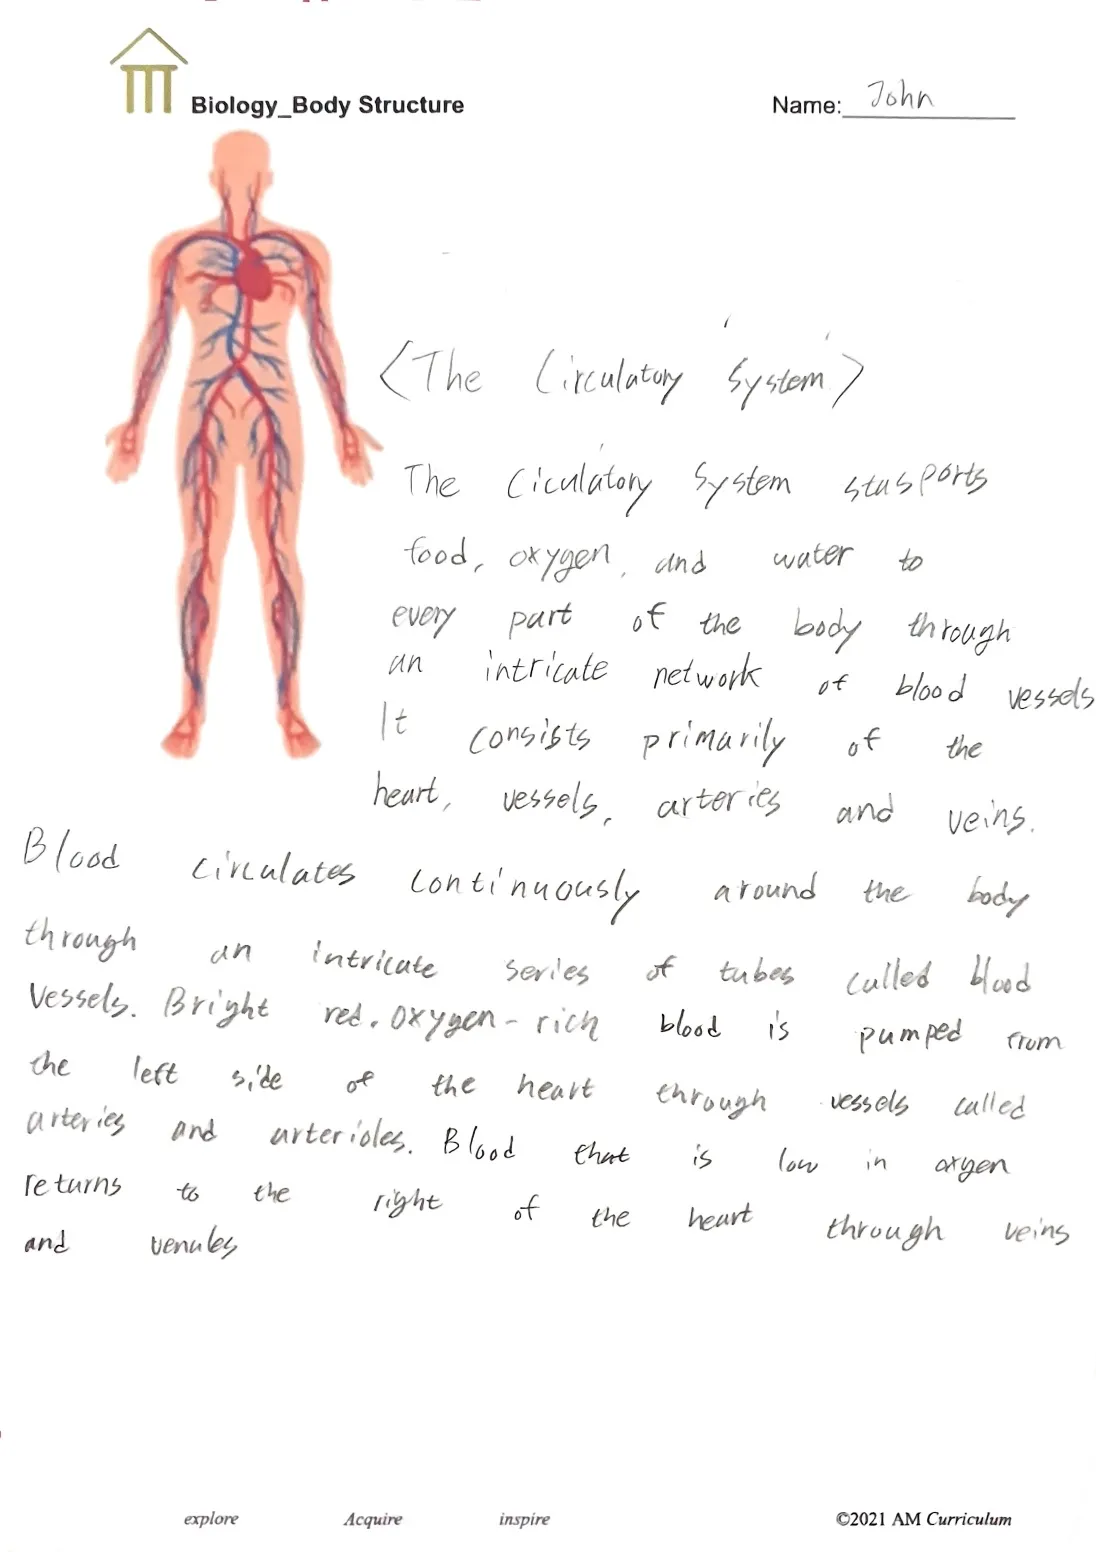 Biology_Body Structure
Name: John
<The Circulatory System>
The Ciculatory System stusports
food, oxygen, and water to
every part of the body through
an intricate network of blood vessels
It consists primarily of the
heart, vessels, arteries and veins.
Blood circulates continuously around the body
through an intricate series of tubes called blood
Vessels. Bright red, oxygen-rich blood is pumped from
the left side of the heart through vessels called
arteries and arterioles. Blood that is low in oxygen
returns to the right of the heart through veins
and venules
explore Acquire inspire ©2021 AM Curriculum